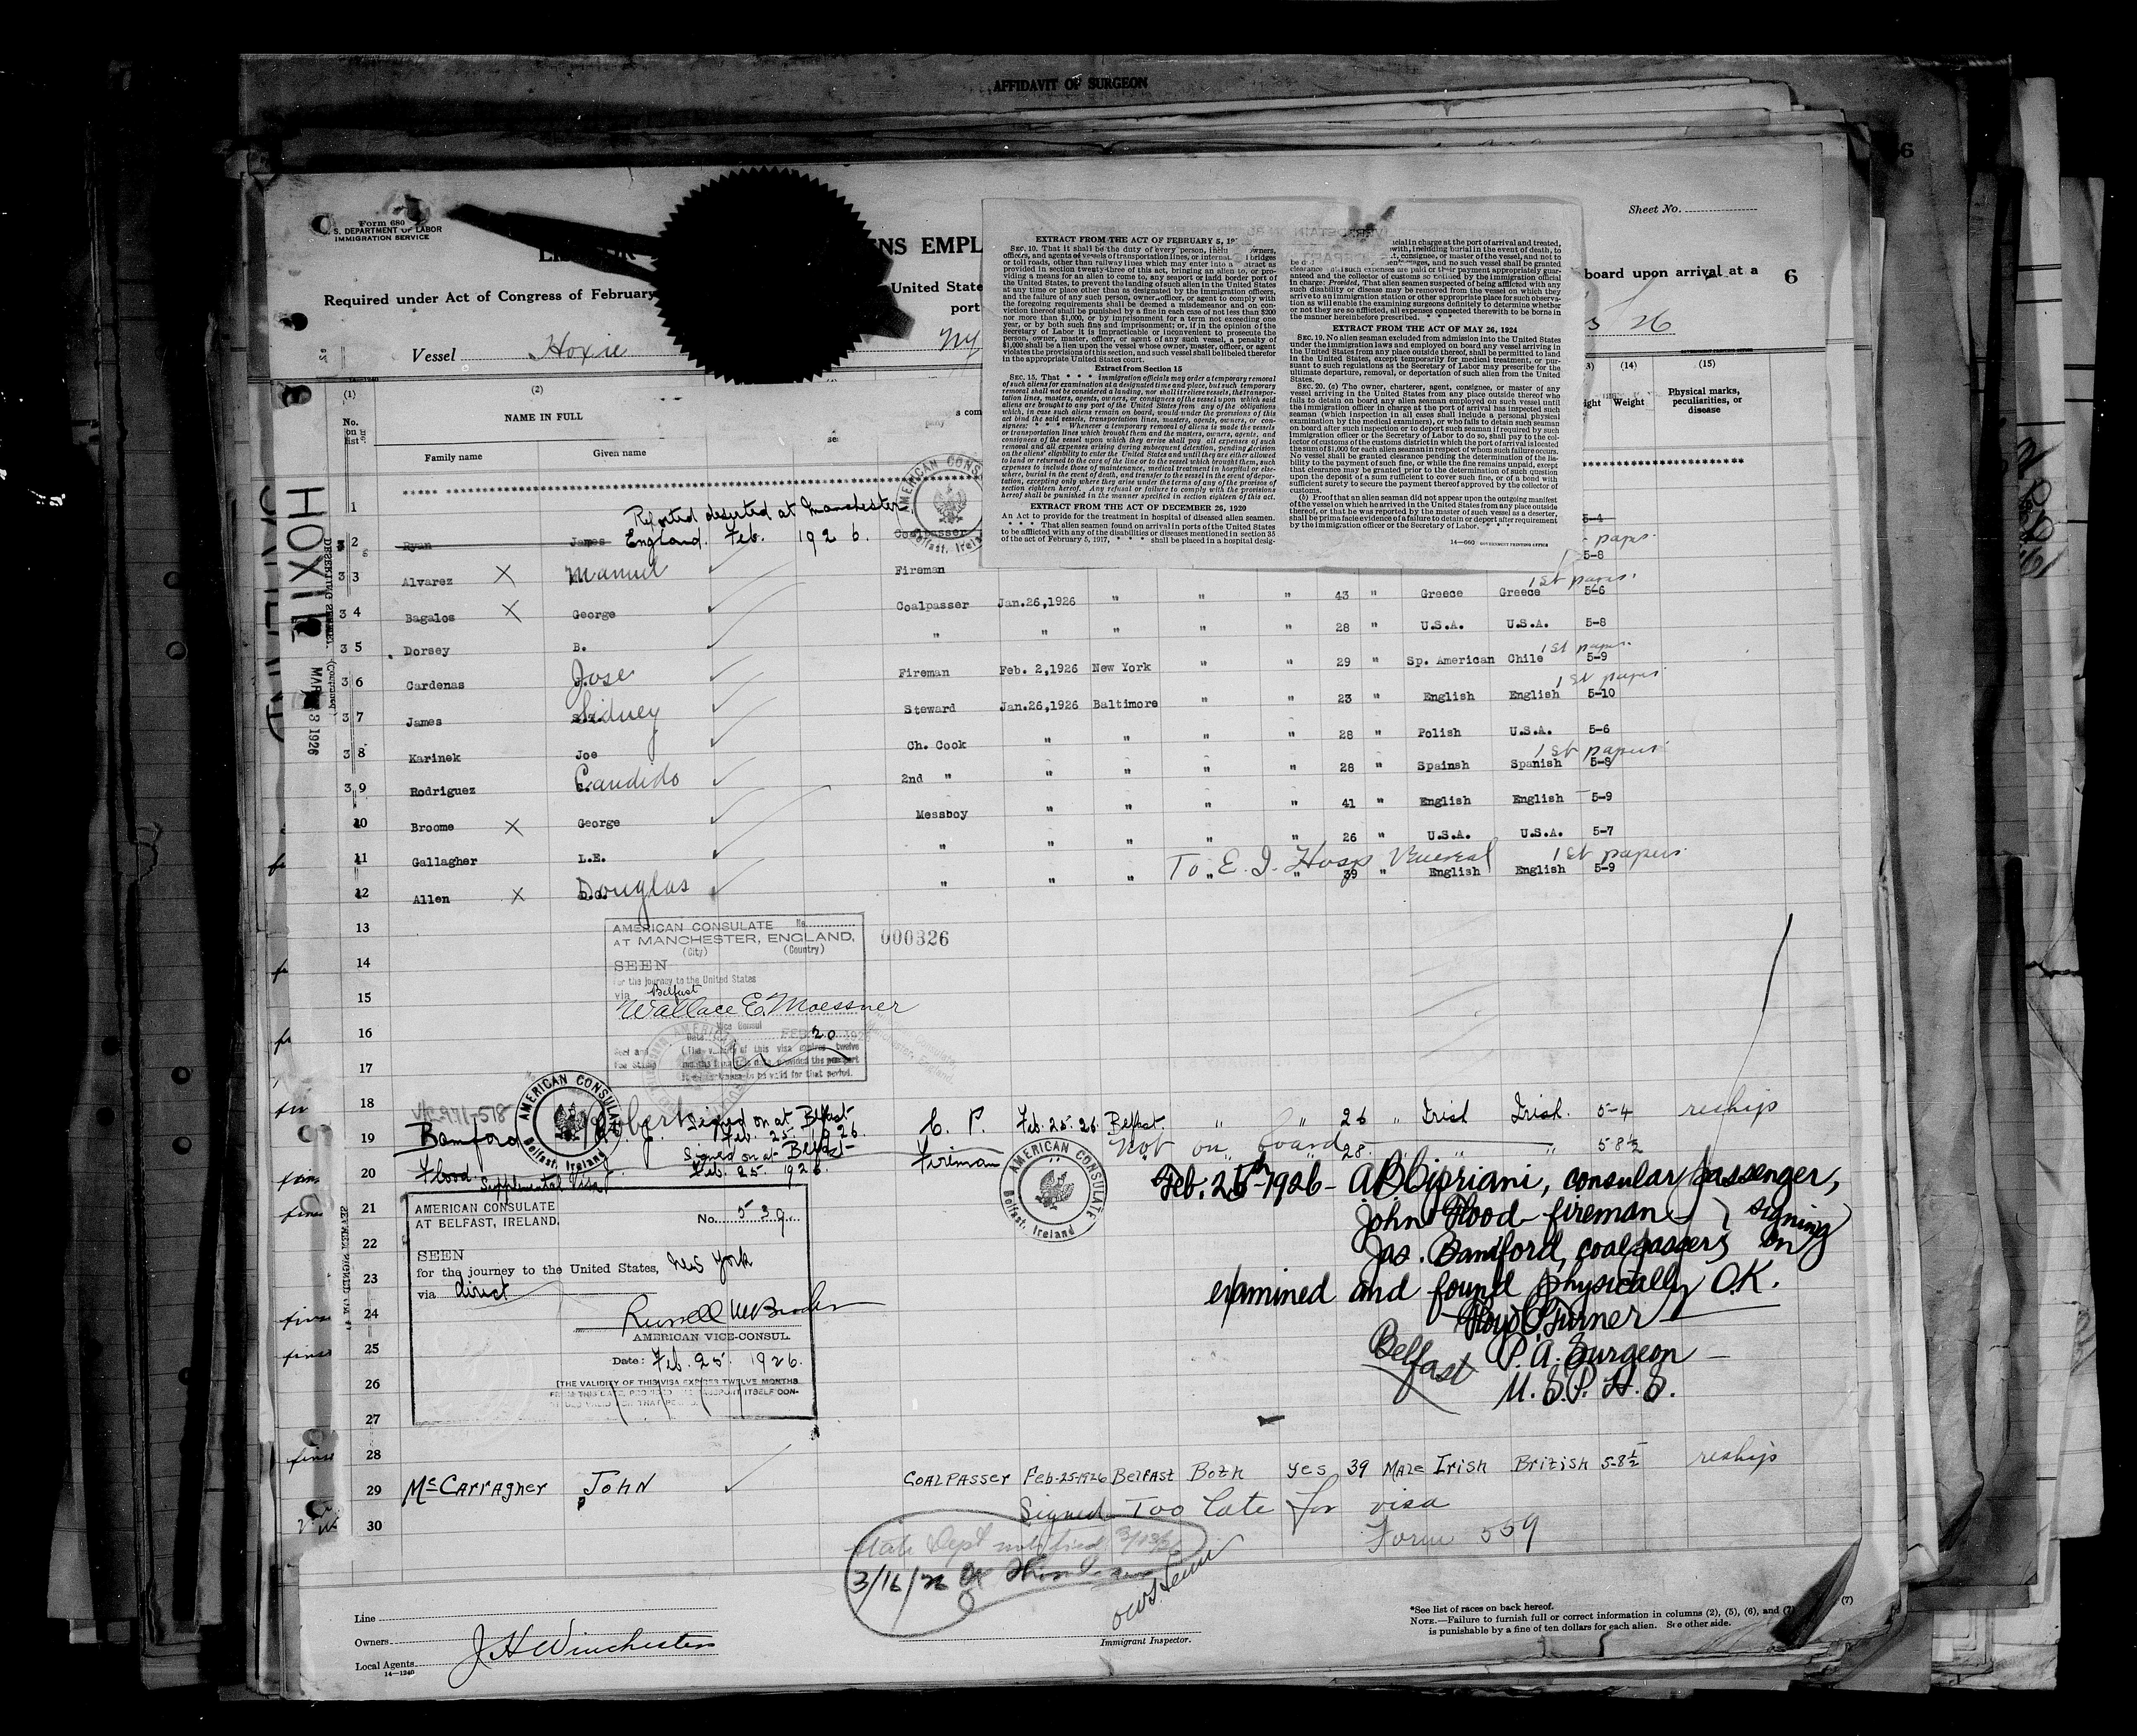 AFFIDAVIT OF SURGEON
6
Sheet No.
Form 680
S. DEPARTMENT OF LABOR
IMMIGRATION SERVICE
ENS EMPL
board upon arrival at a 6
Required under Act of Congress of February
United State
port
Vessel Hoxie
NY
26
EXTRACT FROM THE ACT OF FEBRUARY 5, 19
SEC. 10. That it shall be the duty of every person, owners,
officers, and agents of vessels of transportation lines, or internat bridges
or toll roads, other than railway lines which may enter into a contract as
provided in section twenty-three of this act, bringing an alien to, or pro-
viding a means for an alien to come to, any seaport or land border port of
the United States, to prevent the landing of such alien in the United States
at any time or place other than as designated by the immigration officers,
and the failure of any such person, owner, officer, or agent to comply with
the foregoing requirements shall be deemed a misdemeanor and on con-
viction thereof shall be punished by a fine in each case of not less than $200
nor more than $1,000, or by imprisonment for a term not exceeding one
year, or by both such fine and imprisonment; or, if in the opinion of the
Secretary of Labor it is impracticable or inconvenient to prosecute the
person, owner, master, officer, or agent of any such vessel, a penalty of
$1,000 shall be a lien upon the vessel whose owner, master, officer, or agent
violates the provisions of this section, and such vessel shall be libeled therefor
in the appropriate United States court.
Extract from Section 15
SEC. 15. That * * * immigration officials may order a temporary removal
of such aliens for examination at a designated time and place, but such temporary
removal shall not be considered a landing, nor shall it relieve vessels, the transpor-
tation lines, masters, agents, owners, or consignees of the vessel upon which said
aliens are brought to any port of the United States from any of the obligations
which, in case such aliens remain on board, would under the provisions of this
act bind the said vessels, transportation lines, masters, agents, owners, or con-
signees: * * * Whenever a temporary removal of aliens is made the vessels
or transportation lines which brought them and the masters, owners, agents, and
consignees of the vessel upon which they arrive shall pay all expenses of such
removal and all expenses arising during subsequent detention, pending decision
on the aliens' eligibility to enter the United States and until they are either allowed
to land or returned to the care of the line or to the vessel which brought them, such
expenses to include those of maintenance, medical treatment in hospital or else-
where, burial in the event of death, and transfer to the vessel in the event of depor-
tation, excepting only where they arise under the terms of any of the provisos of
section eighteen hereof. Any refusal or failure to comply with the provisions
hereof shall be punished in the manner specified in section eighteen of this act.
EXTRACT FROM THE ACT OF DECEMBER 26, 1920
An Act to provide for the treatment in hospital of diseased alien seamen.
* * * * That alien seamen found on arrival in ports of the United States
to be afflicted with any of the disabilities or diseases mentioned in section 35
of the act of February 5, 1917, * * * shall be placed in a hospital desig-
cial in charge at the port of arrival and treated,
with, including burial in the event of death, to
t, consignee, or master of the vessel, and not to
and no such vessel shall be granted
clearance such expenses are paid or their payment appropriately guar-
anteed and the collector of customs so notified by the immigration official
in charge: Provided, That alien seamen suspected of being afflicted with any
such disability or disease may be removed from the vessel on which they
arrive to an immigration station or other appropriate place for such observa-
tion as will enable the examining surgeons definitely to determine whether
or not they are so afflicted, all expenses connected therewith to be borne in
the manner hereinbefore prescribed. * * *
EXTRACT FROM THE ACT OF MAY 26, 1924
SEC. 19. No alien seaman excluded from admission into the United States
under the immigration laws and employed on board any vessel arriving in
the United States from any place outside thereof, shall be permitted to land
in the United States, except temporarily for medical treatment, or pur-
suant to such regulations as the Secretary of Labor may prescribe for the
ultimate departure, removal, or deportation of such alien from the United
States.
SEC. 20. (a) The owner, charterer, agent, consignee, or master of any
vessel arriving in the United States from any place outside thereof who
fails to detain on board any alien seaman employed on such vessel until
the immigration officer in charge at the port of arrival has inspected such
seaman (which inspection in all cases shall include a personal physical
examination by the medical examiners), or who fails to detain such seaman
on board after such inspection or to deport such seaman if required by such
immigration officer or the Secretary of Labor to do so, shall pay to the col-
lector of customs of the customs district in which the port of arrival is located
the sum of $1,000 for each alien seaman in respect of whom such failure occurs.
No vessel shall be granted clearance pending the determination of the lia-
bility to the payment of such fine, or while the fine remains unpaid, except
that clearance may be granted prior to the determination of such question
upon the deposit of a sum sufficient to cover such fine, or of a bond with
sufficient surety to secure the payment thereof approved by the collector of
customs.
(b) Proof that an alien seaman did not appear upon the outgoing manifest
of the vessel on which he arrived in the United States from any place outside
thereof, or that he was reported by the master of such vessel as a deserter,
shall be prima facie evidence of a failure to detain or deport after requirement
by the immigration officer or the Secretary of Labor. * * *
14—660 GOVERNMENT PRINTING OFFICE
(1) (2) (14) (15)
No. on list
NAME IN FULL
Weight
Physical marks, peculiarities, or disease
Family name Given name
HOXIE
1 Reported deserted at Manchester 5-4
2 Ryan James England. Feb. 1926. Coalpasser 5-8
3 Alvarez X Manuel Fireman 1st papers.
4 Bagalos X George Coalpasser Jan.26,1926 " " " 43 " Greece Greece 5-6
5 Dorsey B. " " " " " 28 " U.S.A. U.S.A. 5-8
1st papers
6 Cardenas Jose Fireman Feb. 2,1926 New York " " 29 " Sp. American Chile 5-9
1st papers
7 James Sidney Steward Jan.26,1926 Baltimore " " 23 " English English 5-10
8 Karinek Joe Ch. Cook " " " " 28 " Polish U.S.A. 5-6
1st papers
9 Rodriguez Candido 2nd " " " " " 28 " Spainsh Spanish 5-8
10 Broome X George Messboy " " " " 41 " English English 5-9
11 Gallagher L.E. " " " " " 26 " U.S.A. U.S.A. 5-7
To E. I. Hosp Venereal 1st papers
12 Allen X Douglas " " " " " 39 " English English 5-9
13
AMERICAN CONSULATE No.
AT MANCHESTER, ENGLAND, 000326
(City) (Country)
14
SEEN
for the journey to the United States
15
via Belfast
Wallace E. Moessner
Vice Consul
16
Date FEB 20 1926
17
18
19 Bamford Robert J. Signed on at Belfast Feb. 25. 1926. C. P. Feb. 25. 26. Belfast. " " 26 " Irish Irish. 5-4 reship
20 Flood Signed on at Belfast Feb. 25. 1926. Fireman Not on board 28 " " 5-8½
Supplemental Visa
AMERICAN CONSULATE Belfast, Ireland
AMERICAN CONSULATE Belfast, Ireland
AMERICAN CONSULATE
AT BELFAST, IRELAND. No. 539.
SEEN
for the journey to the United States, New York
via direct
AMERICAN VICE-CONSUL.
Date: Feb. 25. 1926.
[THE VALIDITY OF THIS VISA EXPIRES TWELVE MONTHS
Feb. 25th-1926- A B Cipriani, consular passenger,
John Flood fireman } signing
Jas. Bamford, coalpasser } on
examined and found physically O.K.
Floyd C Turner
Belfast P. A. Surgeon
U. S. P. H. S.
21
22
23
24
25
26
27
28
29 McCarragher John COALPASSER Feb-25-1926 Belfast Both yes 39 Male Irish British 5-8½ reship
Signed Too late for visa
30 Form 559
State Dept notified 3/13/26
3/16/26
Line
Owners
Local Agents J H Winchester
14—1240
Immigrant Inspector.
*See list of races on back hereof.
NOTE.—Failure to furnish full or correct information in columns (2), (5), (6), and (7)
is punishable by a fine of ten dollars for each alien. See other side.